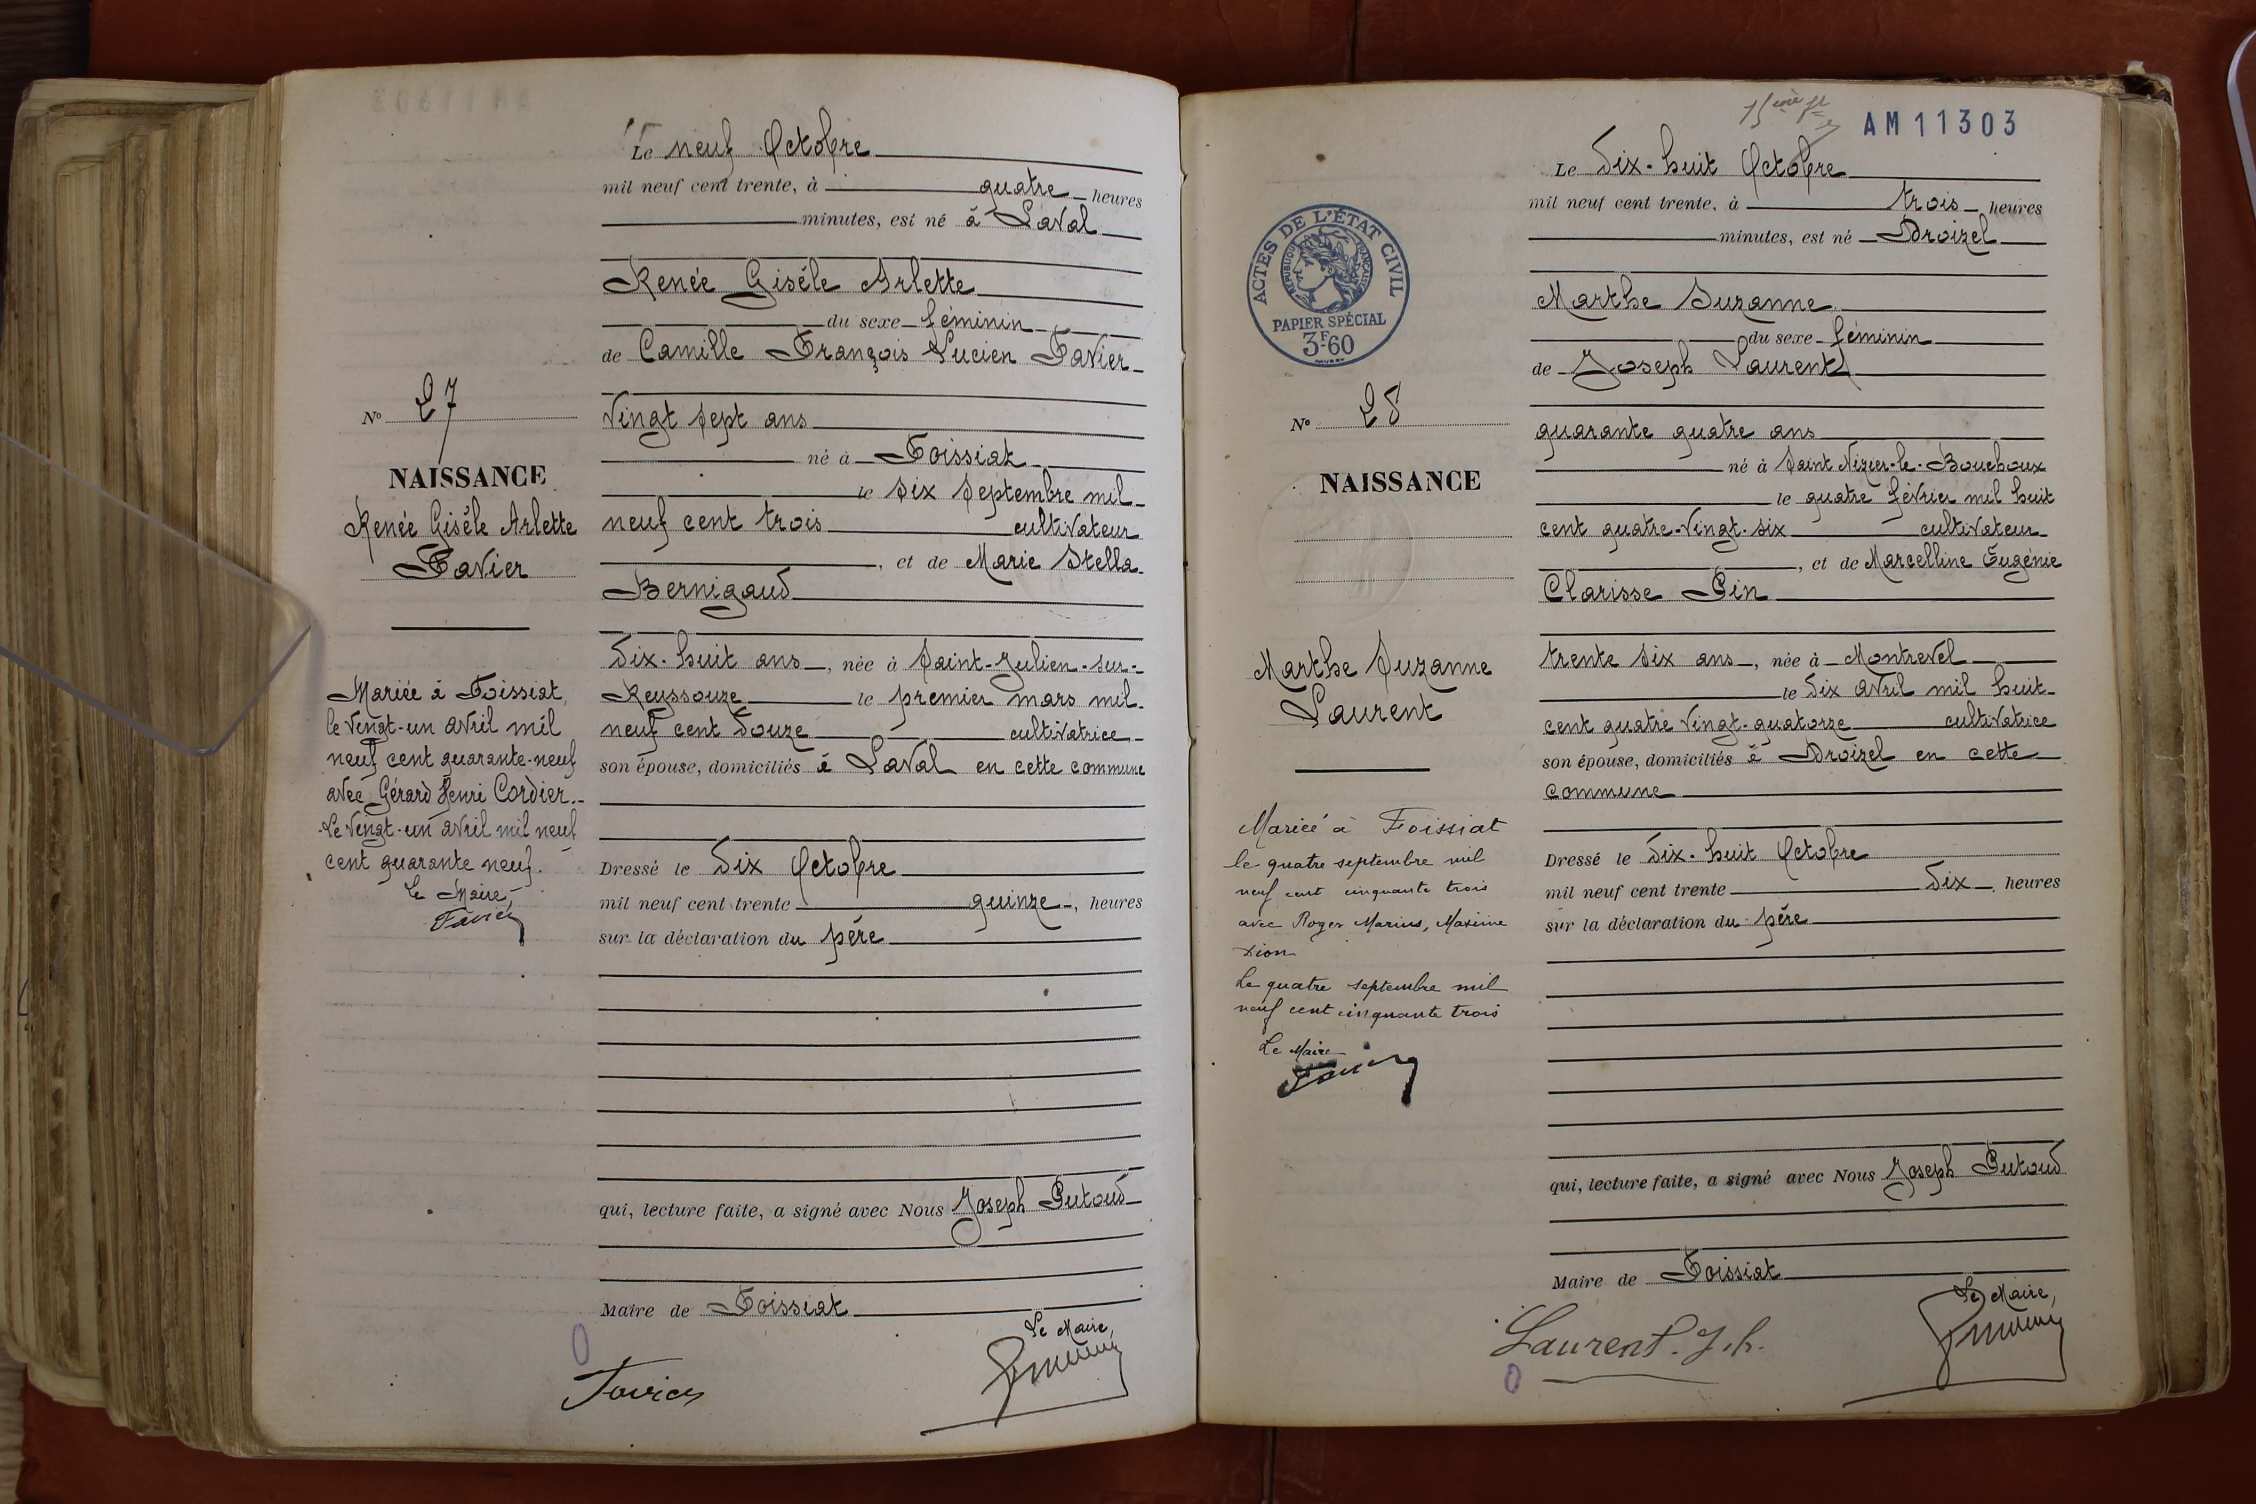 Le neuf Octobre
mil neuf cent trente, à quatre heures
minutes, est né à Laval
Renée Gisèle Arlette
du sexe féminin
de Camille François Lucien Favier
Vingt sept ans
né à Foissiat
le six septembre mil
neuf cent trois cultivateur
, et de Marie Stella
Bernigaud
Dix-huit ans, née à Saint-Julien-sur-
Reyssouze le premier mars mil
neuf cent douze cultivatrice
son épouse, domiciliés à Laval en cette commune
Dressé le Dix Octobre
mil neuf cent trente quinze, heures
sur la déclaration du père
qui, lecture faite, a signé avec Nous Joseph Putoud
Maire de Foissiat
Le Maire,
Favier
N° 27
NAISSANCE
Renée Gisèle Arlette
Favier
Mariée à Foissiat,
le Vingt-un avril mil
neuf cent quarante-neuf
avec Gérard Henri Cordier.
Le Vingt-un avril mil neuf
cent quarante neuf.
Le Maire,
Favier
AM11303
ACTES DE L'ÉTAT CIVIL
RÉPUBLIQUE FRANÇAISE
PAPIER SPÉCIAL
3F60
N° 28
NAISSANCE
Marthe Suzanne
Laurent
Mariée à Foissiat
le quatre septembre mil
neuf cent cinquante trois
avec Roger Marius, Maxime
Dion
Le quatre septembre mil
neuf cent cinquante trois
Le Maire
Favier
Le Dix-huit Octobre
mil neuf cent trente, à trois heures
minutes, est né Droizel
Marthe Suzanne
du sexe féminin
de Joseph Laurent
quarante quatre ans
né à Saint Nizier-le-Bouchoux
le quatre février mil huit
cent quatre-vingt-six cultivateur
, et de Marcelline Eugénie
Clarisse Pin
trente six ans, née à Montrevel
le Dix avril mil huit
cent quatre vingt-quatorze cultivatrice
son épouse, domiciliés à Droizel en cette
commune
Dressé le Dix-huit Octobre
mil neuf cent trente Dix, heures
sur la déclaration du père
qui, lecture faite, a signé avec Nous Joseph Putoud
Maire de Foissiat
Le Maire,
Laurent. J.h.